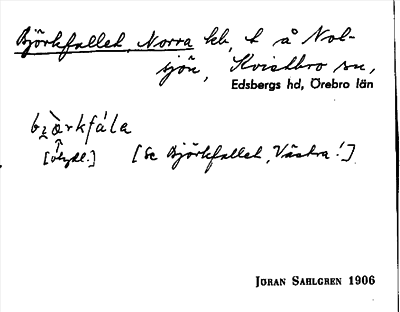 Björkfallet, Norra kb, t å Nol-
sjön, Kvistbro sn,
Edsbergs hd, Örebro län
bʒæ̀rkfála
[otydl.] [Se Björkfallet, Västra!]
JÖRAN SAHLGREN 1906